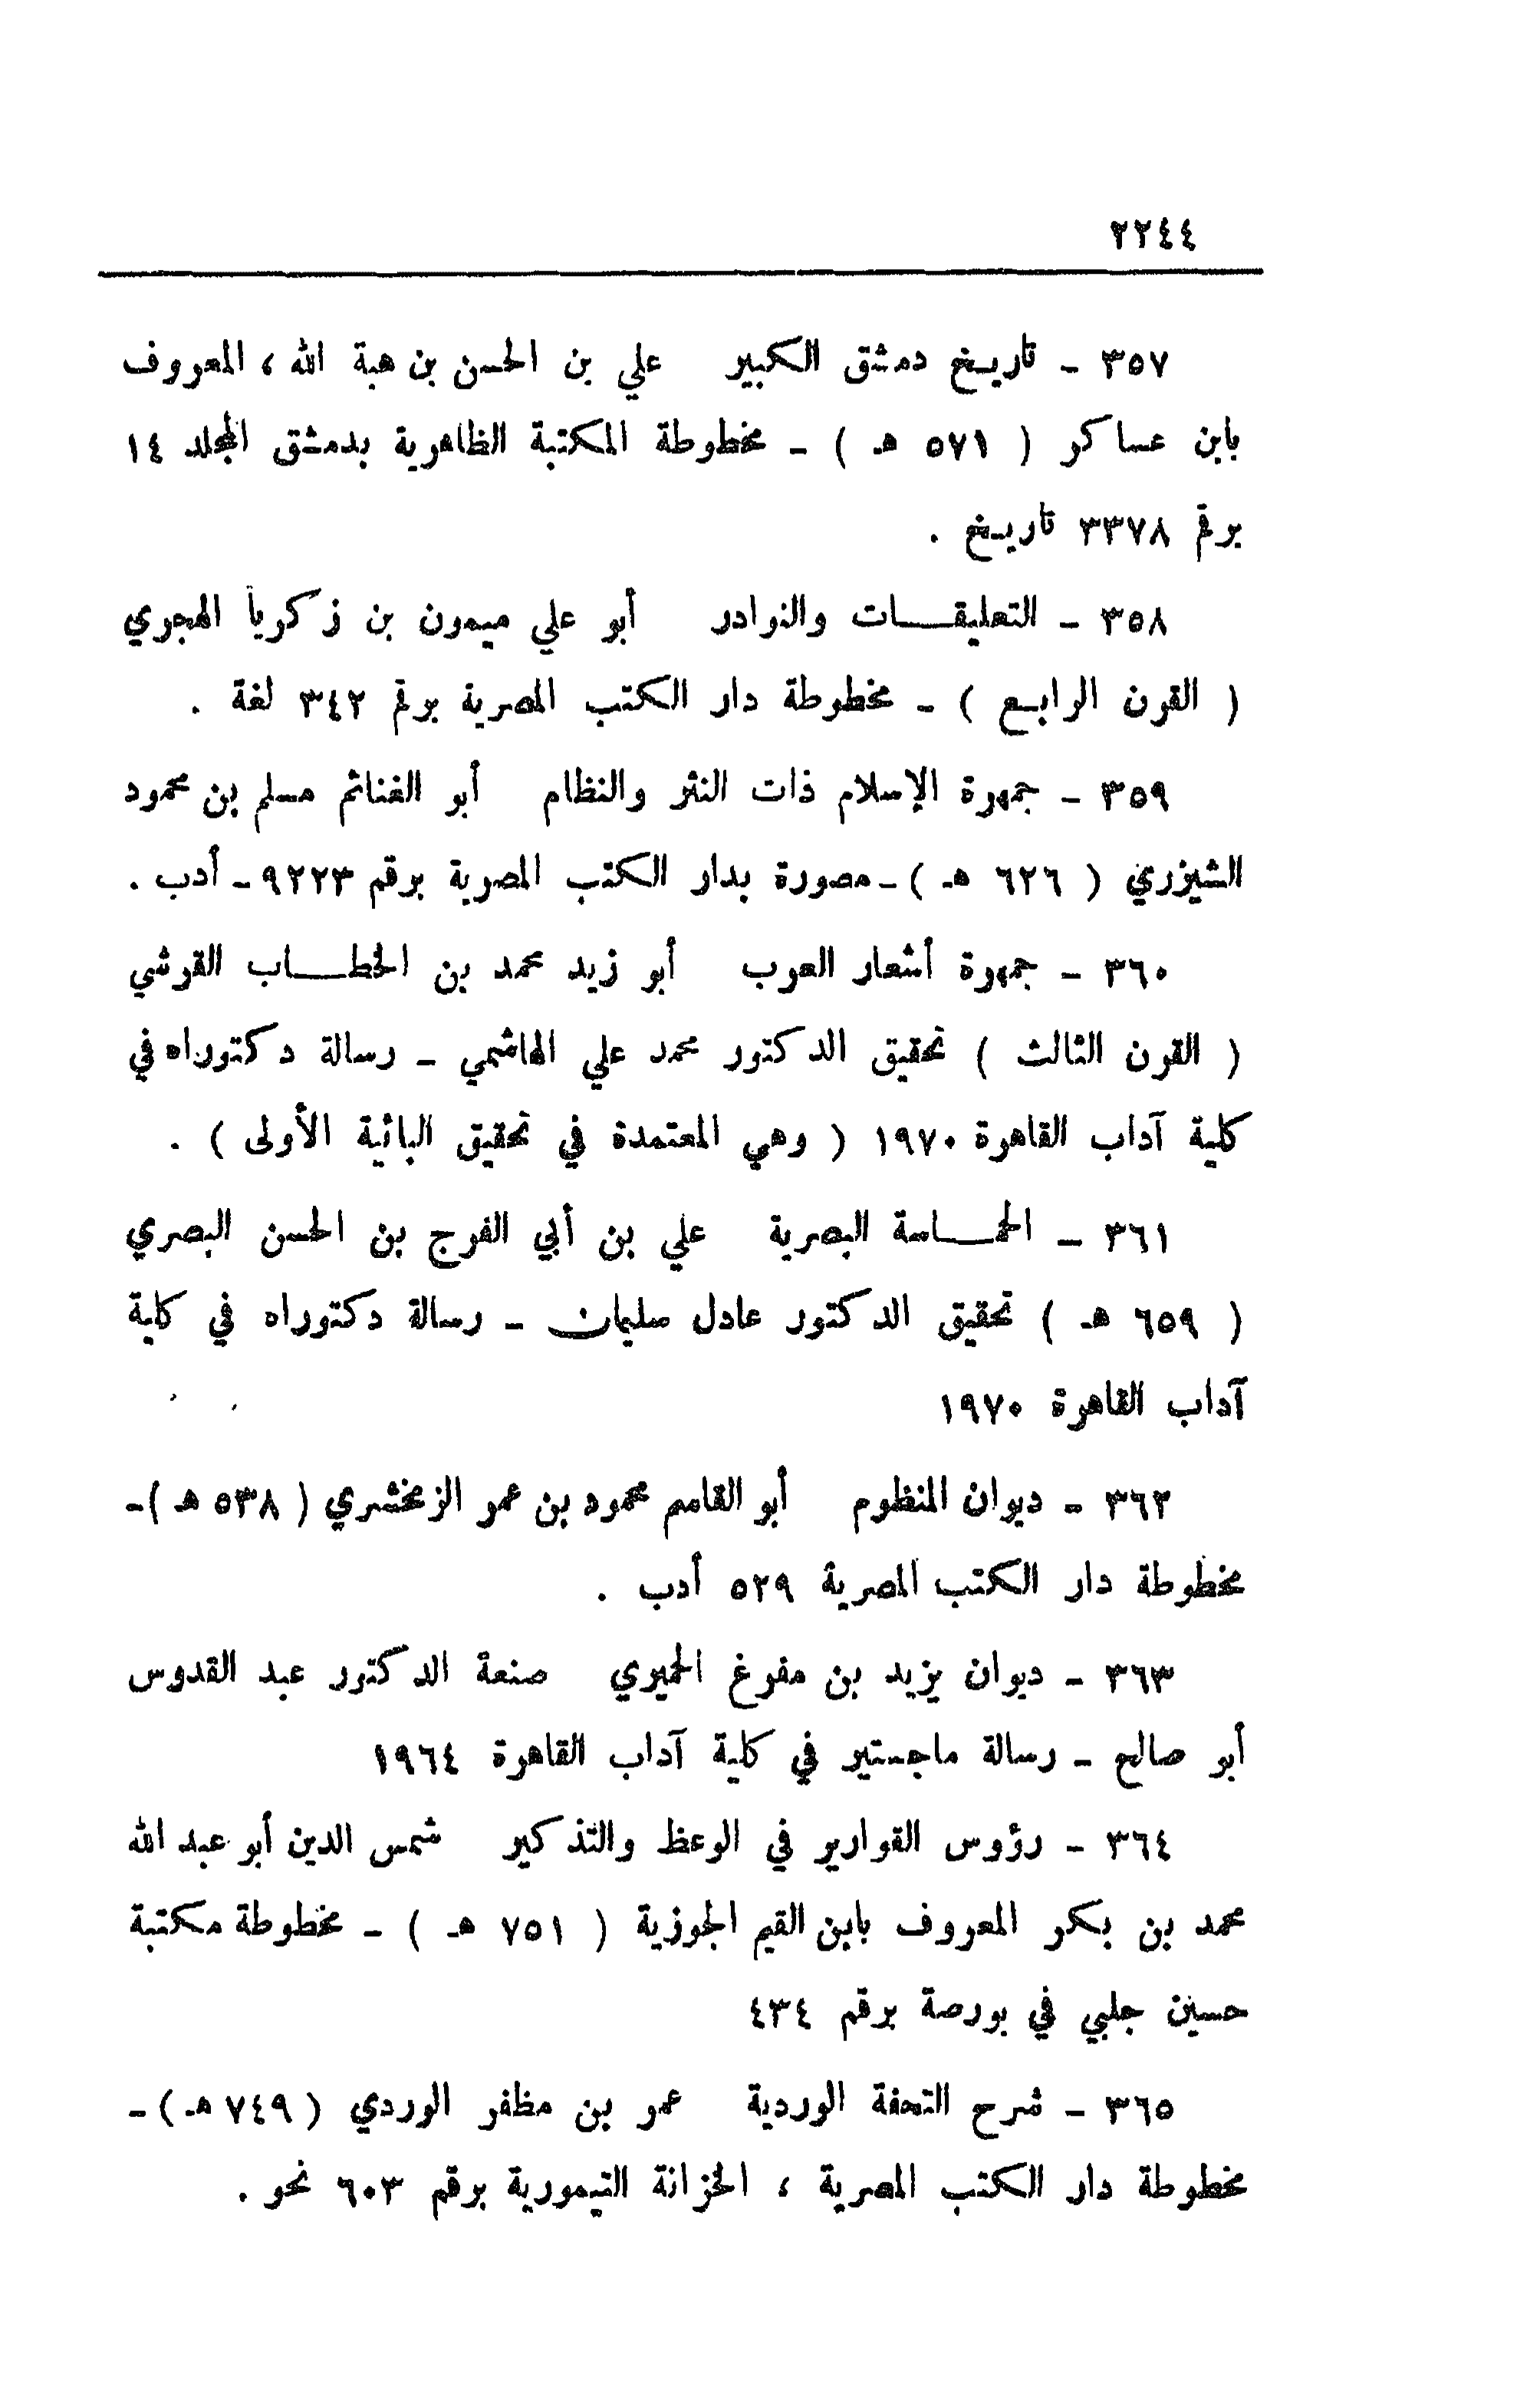 ٢٢٤٤
٣٥٧ - تاريخ دمشق الكبير علي بن الحسن بن هبة الله ، المعروف
بابن عساكر ( ٥٧١ هـ ) - مخطوطة المكتبة الظاهرية بدمشق المجلد ١٤
برقم ٣٣٧٨ تاريخ .
٣٥٨ - التعليقات والنوادر أبو علي ميمون بن زكريا الهجري
( القرن الرابع ) - مخطوطة دار الكتب المصرية برقم ٣٤٢ لغة .
٣٥٩ - جمهرة الإسلام ذات النثر والنظام أبو الغنائم مسلم بن محمود
الشيزري ( ٦٢٦ هـ ) - مصورة بدار الكتب المصرية برقم ٩٢٢٣ - أدب .
٣٦٠ - جمهرة أشعار العرب أبو زيد محمد بن الخطاب القرشي
( القرن الثالث ) تحقيق الدكتور محمد علي الهاشمي - رسالة دكتوراه في
كلية آداب القاهرة ١٩٧٠ ( وهي المعتمدة في تحقيق البائية الأولى ) .
٣٦١ - الحماسة البصرية علي بن أبي الفرج بن الحسن البصري
( ٦٥٩ هـ ) تحقيق الدكتور عادل سليمان - رسالة دكتوراه في كلية
آداب القاهرة ١٩٧٠
٣٦٢ - ديوان المنظوم أبو القاسم محمود بن عمر الزمخشري ( ٥٣٨ هـ ) -
مخطوطة دار الكتب المصرية ٥٢٩ أدب .
٣٦٣ - ديوان يزيد بن مفرغ الحميري صنعة الدكتور عبد القدوس
أبو صالح - رسالة ماجستير في كلية آداب القاهرة ١٩٦٤
٣٦٤ - رؤوس القوارير في الوعظ والتذكير شمس الدين أبو عبد الله
محمد بن بكر المعروف بابن القيم الجوزية ( ٧٥١ هـ ) - مخطوطة مكتبة
حسين جلبي في بورصة برقم ٤٣٤
٣٦٥ - شرح التحفة الوردية عمر بن مظفر الوردي ( ٧٤٩ هـ ) -
مخطوطة دار الكتب المصرية ، الخزانة التيمورية برقم ٦٠٣ نحو .